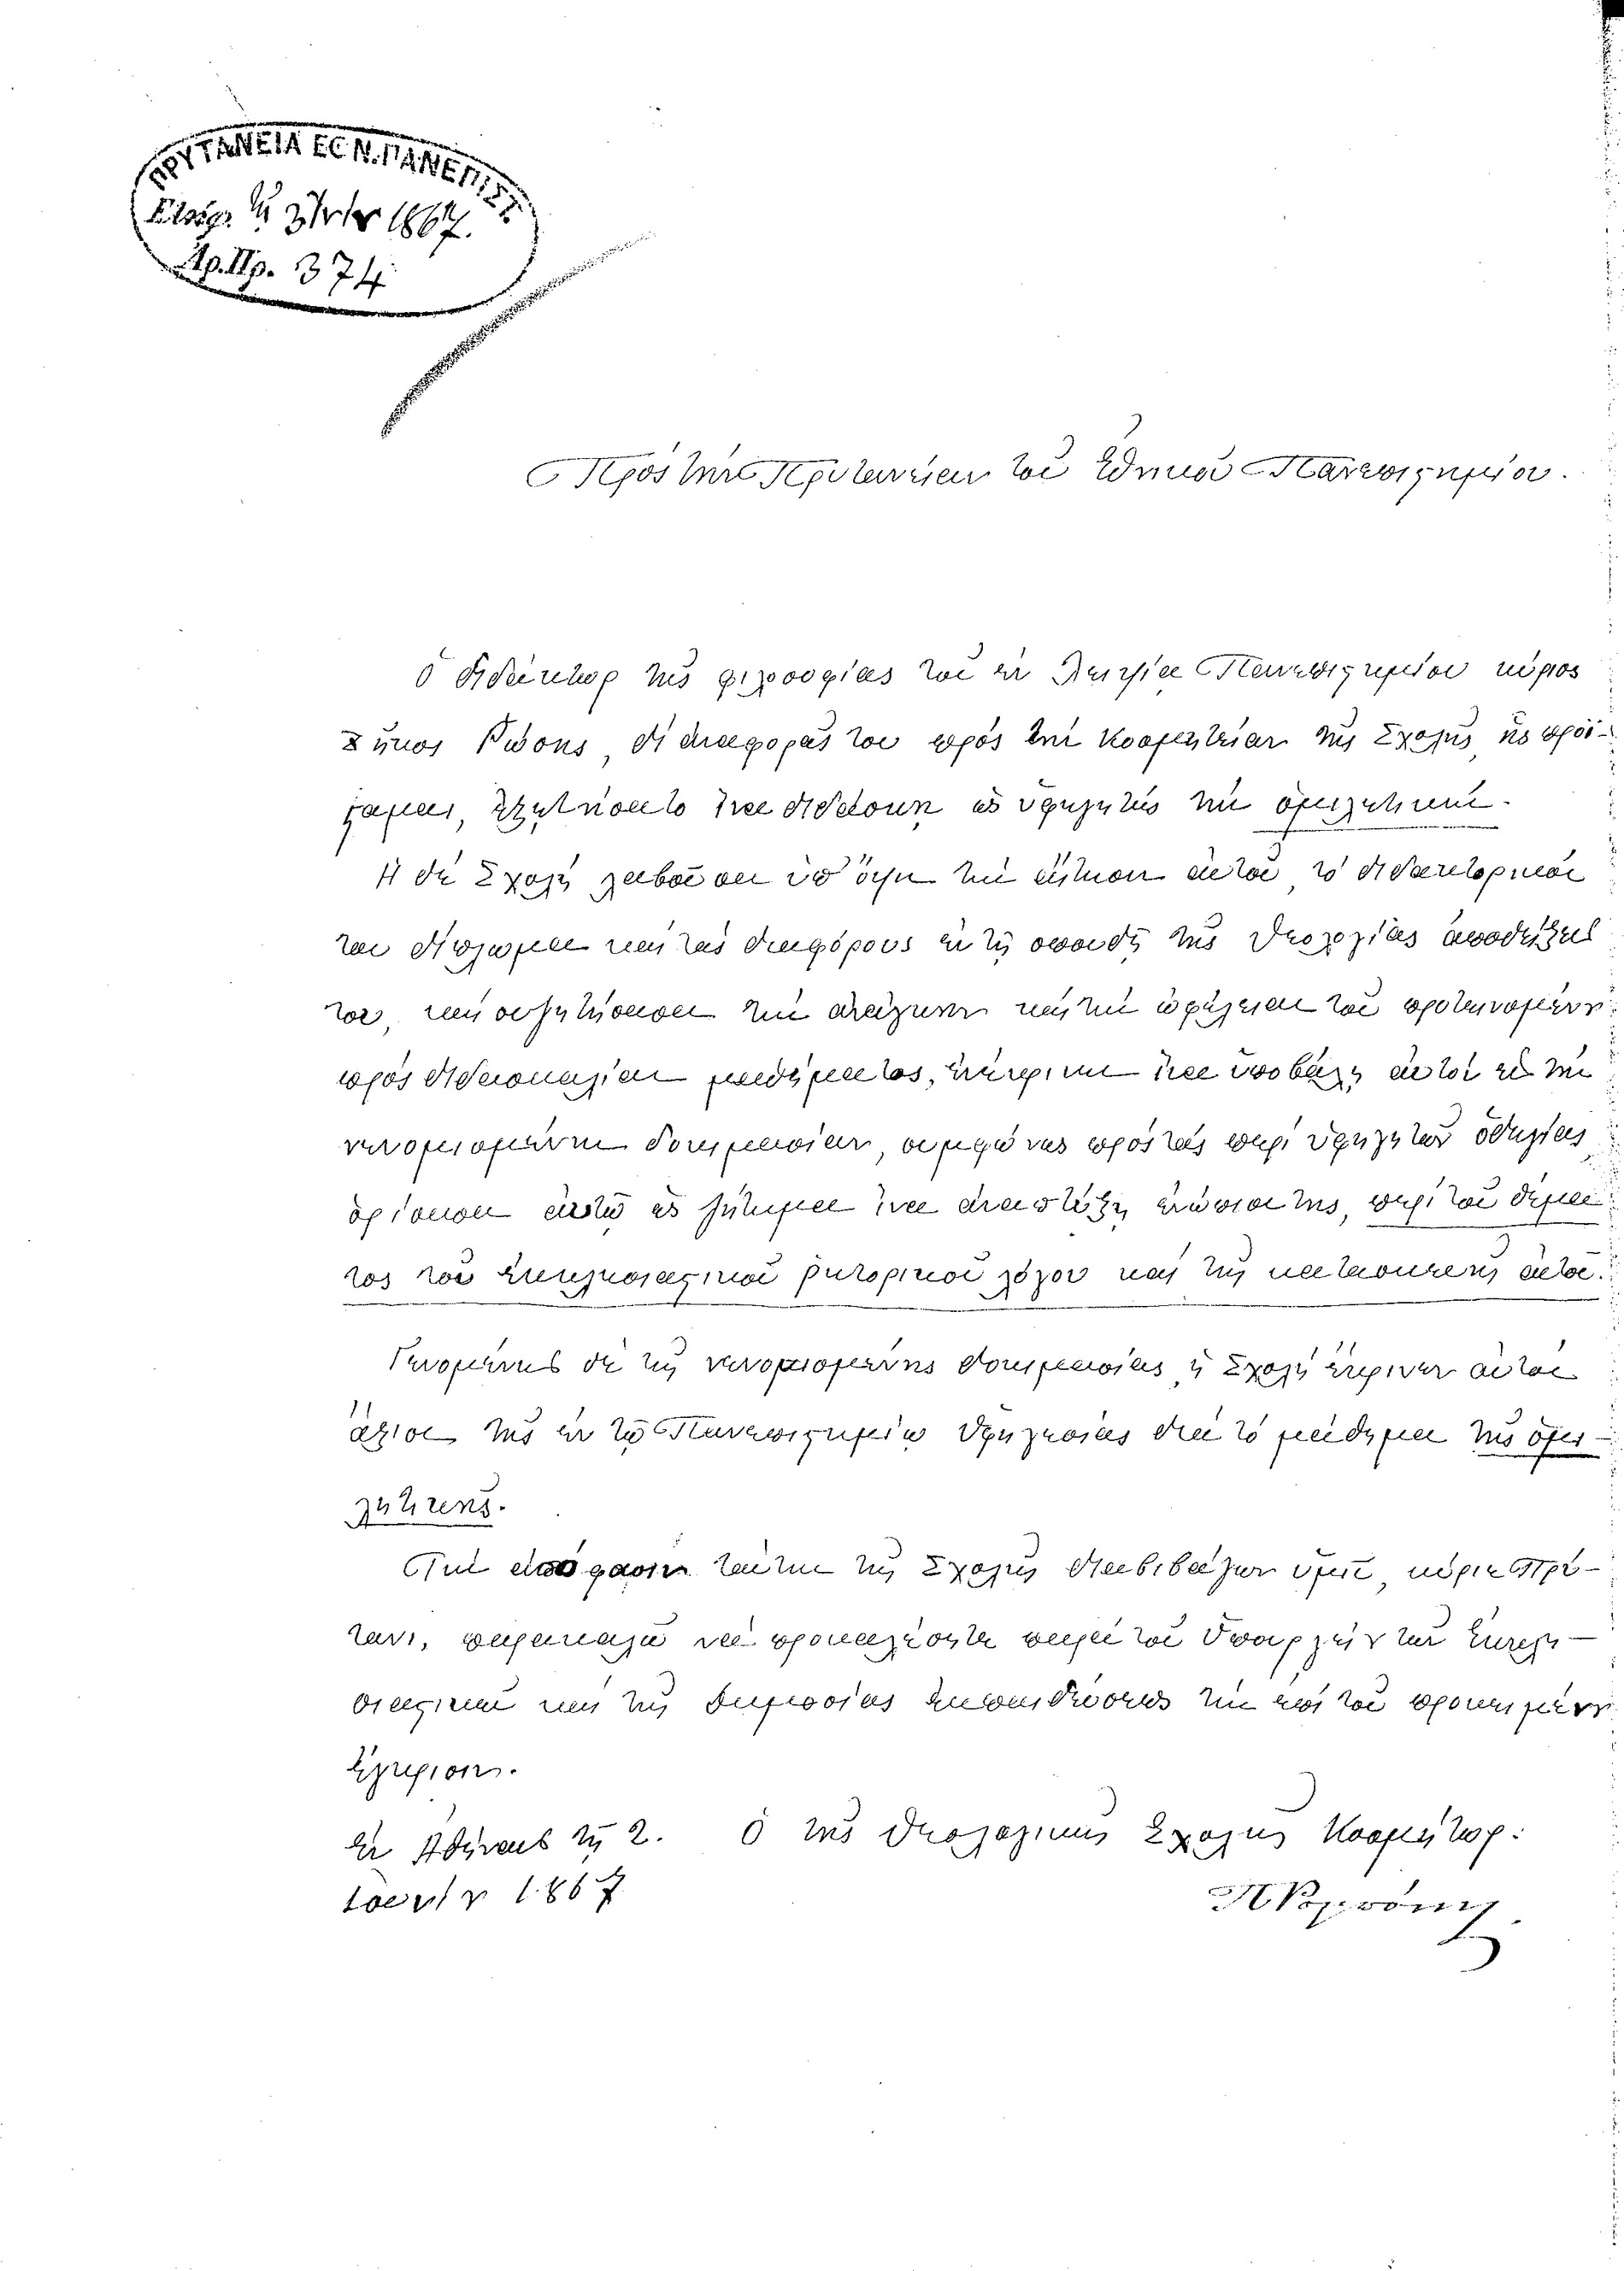 ΠΡΥΤΑΝΕΙΑ ΕΘΝ. ΠΑΝΕΠΙΣΤ.
Εἰσηχ. τῇ 3 1867.
Ἀρ. Πρ. 374
Πρὸς τὴν Πρυτανείαν τοῦ Ἐθνικοῦ Πανεπιστημίου.
Ὁ διδάκτωρ τῆς φιλοσοφίας τοῦ ἐν Λειψίᾳ Πανεπιστημίου κύριος
Ζῆκος Ῥώσης, δι' ἀναφορᾶς του πρὸς τὴν Κοσμητείαν τῆς Σχολῆς ἧς προΐ-
σταμαι, ἐξῃτήσατο ἵνα διδάσκῃ ὡς ὑφηγητὴς τὴν ὁμιλητικήν.
Ἡ δὲ Σχολὴ λαβοῦσα ὑπ' ὄψιν τὴν αἴτησιν αὐτοῦ, τὸ διδακτορικόν
του δίπλωμα καὶ τὰς διαφόρους ἐν τῇ σπουδῇ τῆς Θεολογίας ἀποδείξεις
του, καὶ συζητήσασα τὴν ἀνάγκην καὶ τὴν ὠφέλειαν τοῦ προτεινομένου
πρὸς διδασκαλίαν μαθήματος, ἐνέκρινεν ἵνα ὑποβάλῃ αὐτὸν εἰς τὴν
νενομισμένην δοκιμασίαν, συμφώνως πρὸς τὰς περὶ ὑφηγητῶν ὁδηγίας
ὁρίσασα αὐτῷ ὡς ζήτημα ἵνα ἀναπτύξῃ ἐνώπιον της, περὶ τοῦ θέμα-
τος τοῦ ἐκκλησιαστικοῦ ῥητορικοῦ λόγου καὶ τῆς κατασκευῆς αὐτοῦ.
Γενομένης δὲ τῆς νενομισμένης δοκιμασίας, ἡ Σχολὴ ἔκρινεν αὐτὸν
ἄξιον τῆς ἐν τῷ Πανεπιστημίῳ ὑφηγεσίας διὰ τὸ μάθημα τῆς ὁμι-
λητικῆς.
Τὴν ἀπόφασιν ταύτην τῆς Σχολῆς διαβιβάζων ὑμῖν, κύριε Πρύ-
τανι, παρακαλῶ νὰ προκαλέσητε παρὰ τοῦ Ὑπουργείου τῶν Ἐκκλη-
σιαστικῶν καὶ τῆς Δημοσίας ἐκπαιδεύσεως τὴν ἐπὶ τοῦ προκειμένου
ἔγκρισιν.
Ἐν Ἀθήναις τῇ 2. Ὁ τῆς Θεολογικῆς Σχολῆς Κοσμήτωρ:
1867